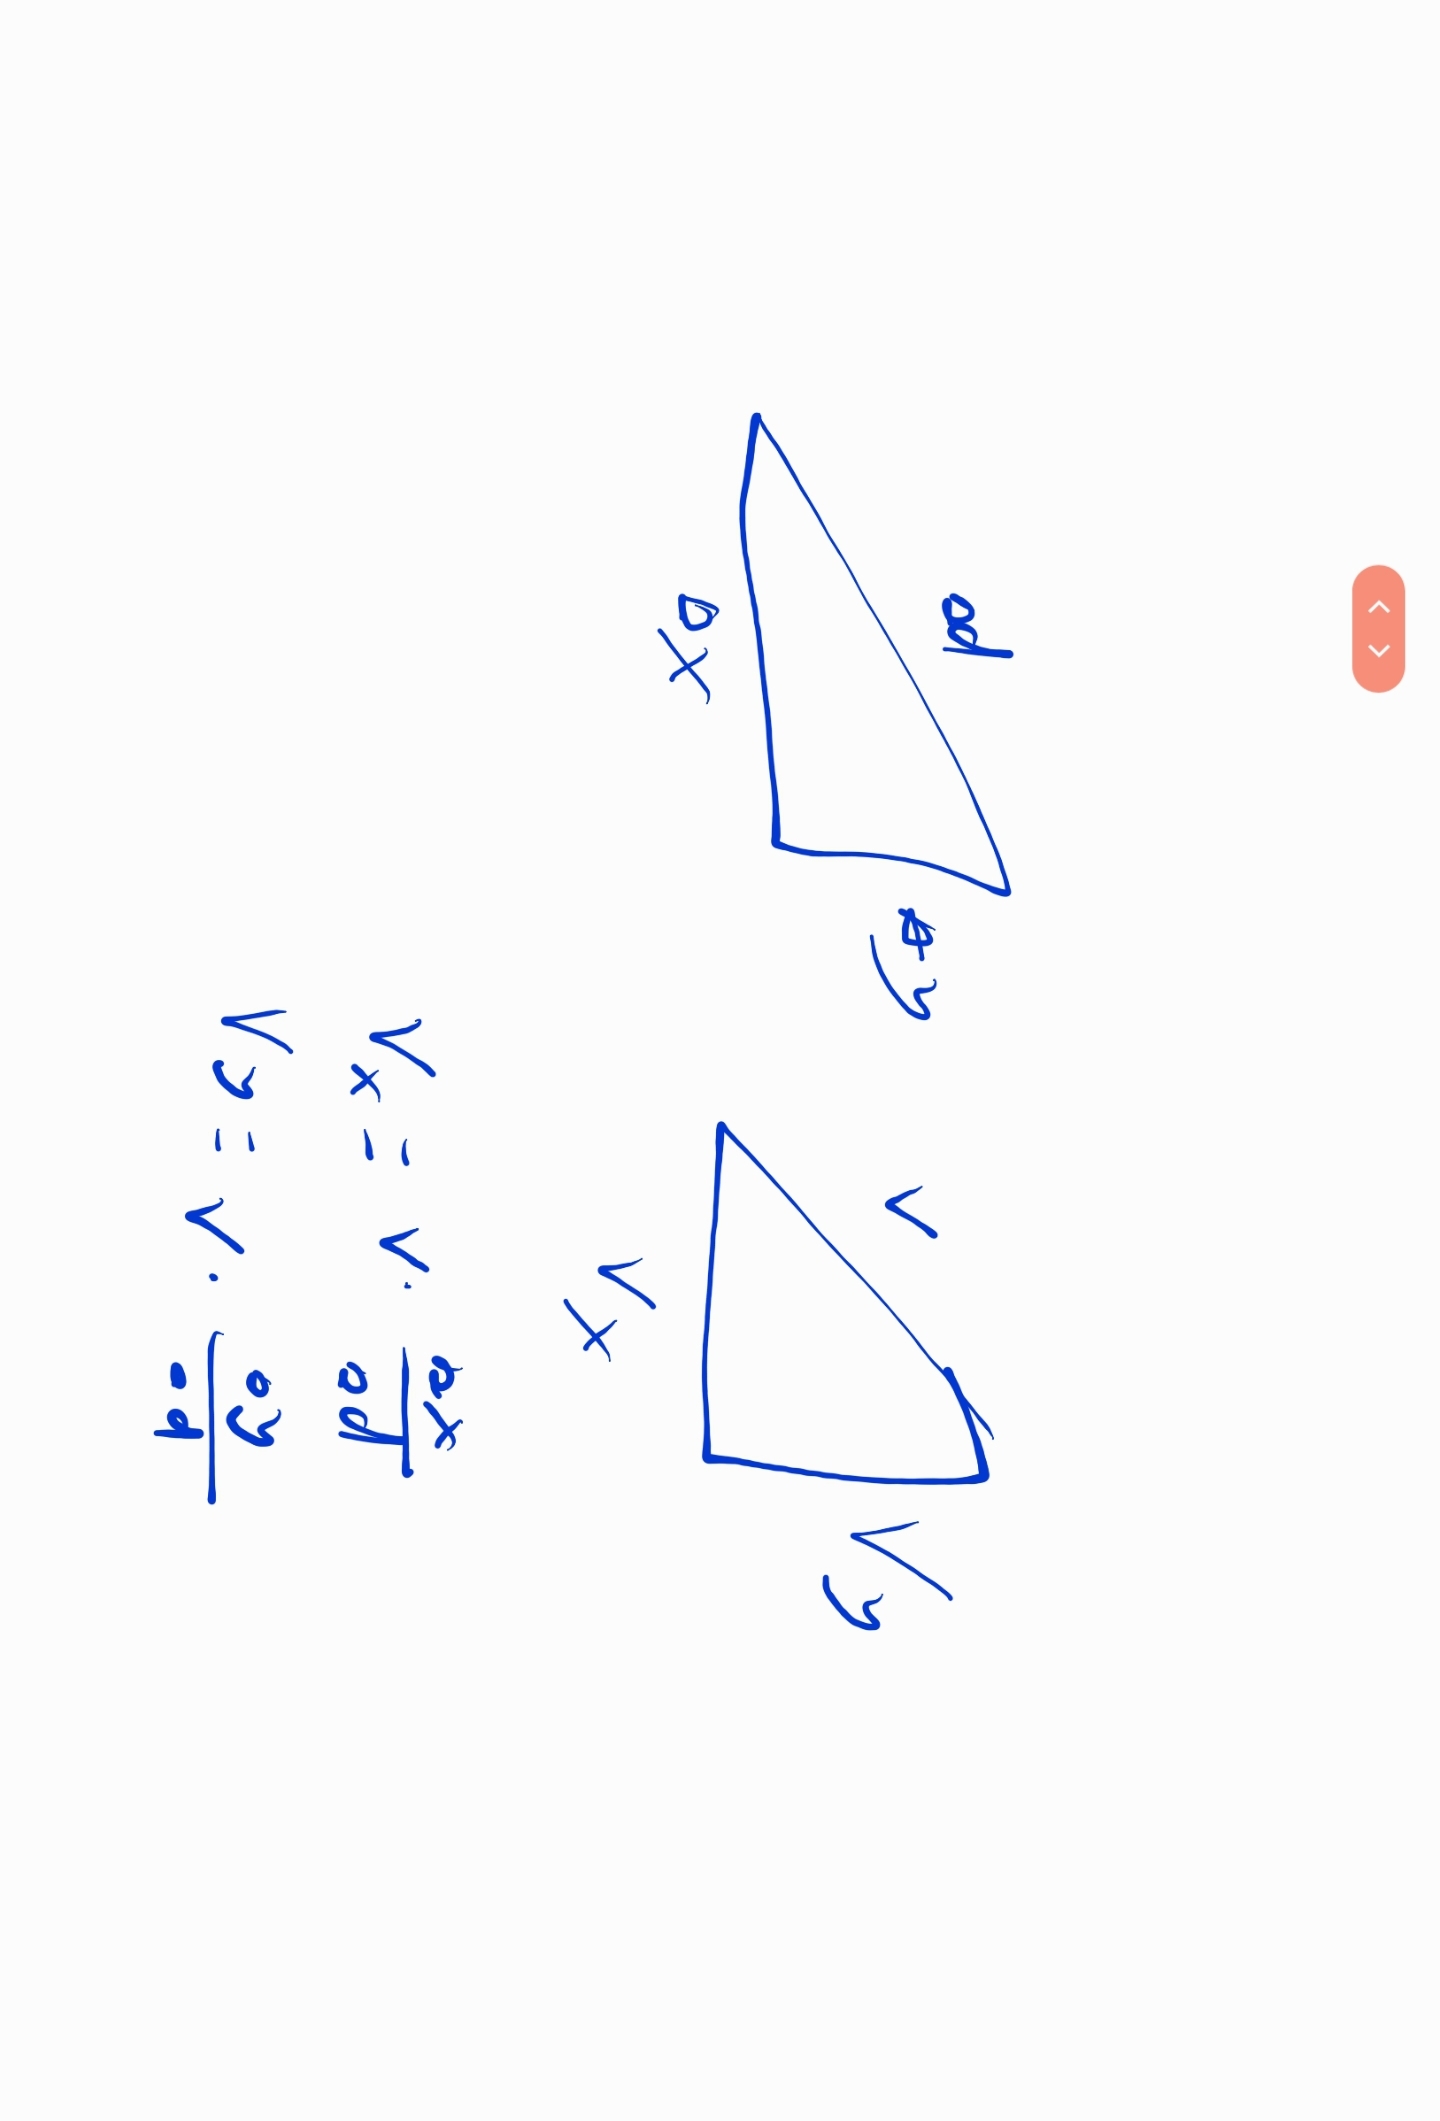 Δd
Δy
Δx
V
Vy
Vx
Vx = V · Δx/Δd
Vy = V · Δy/Δd